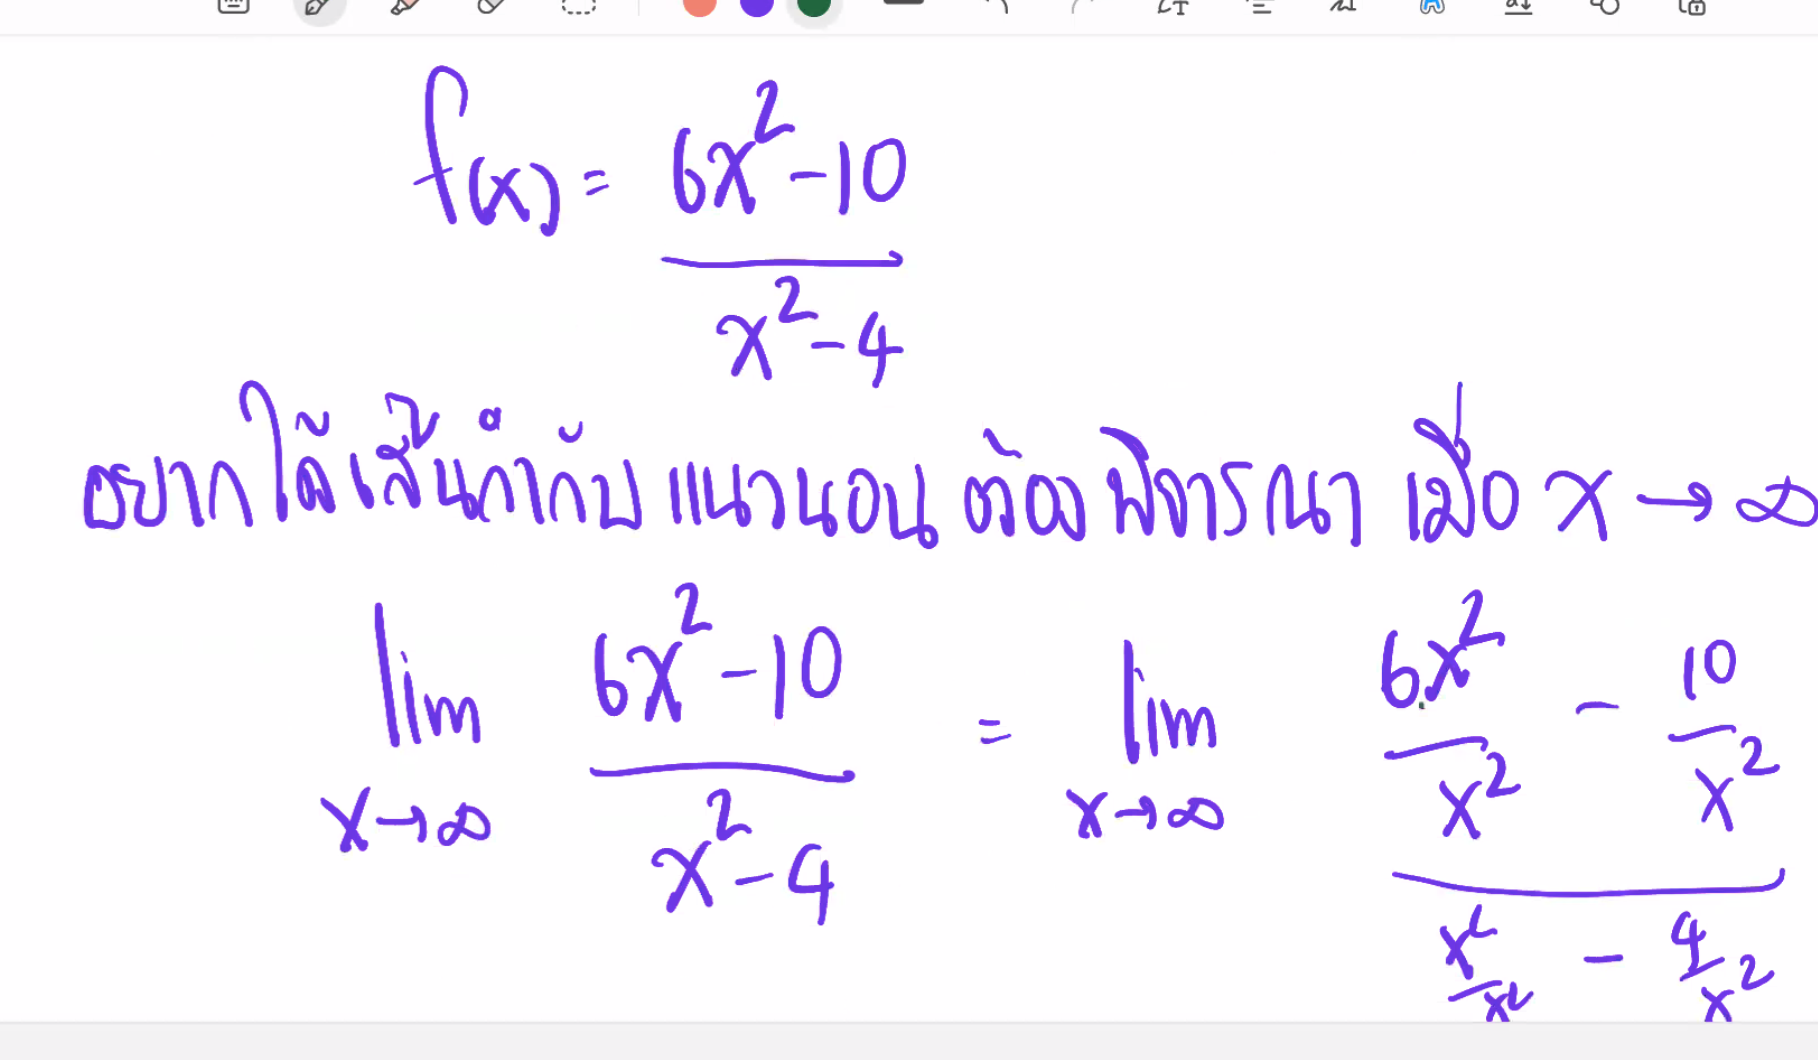 f(x) = 6x² - 10
x² - 4
อยากได้เส้นกำกับ แนวนอน ต้อง พิจารณา เมื่อ x → ∞
lim 6x² - 10 = lim 6x² - 10
x → ∞ x² - 4 x → ∞ x² x²
x² - 4
x² x²